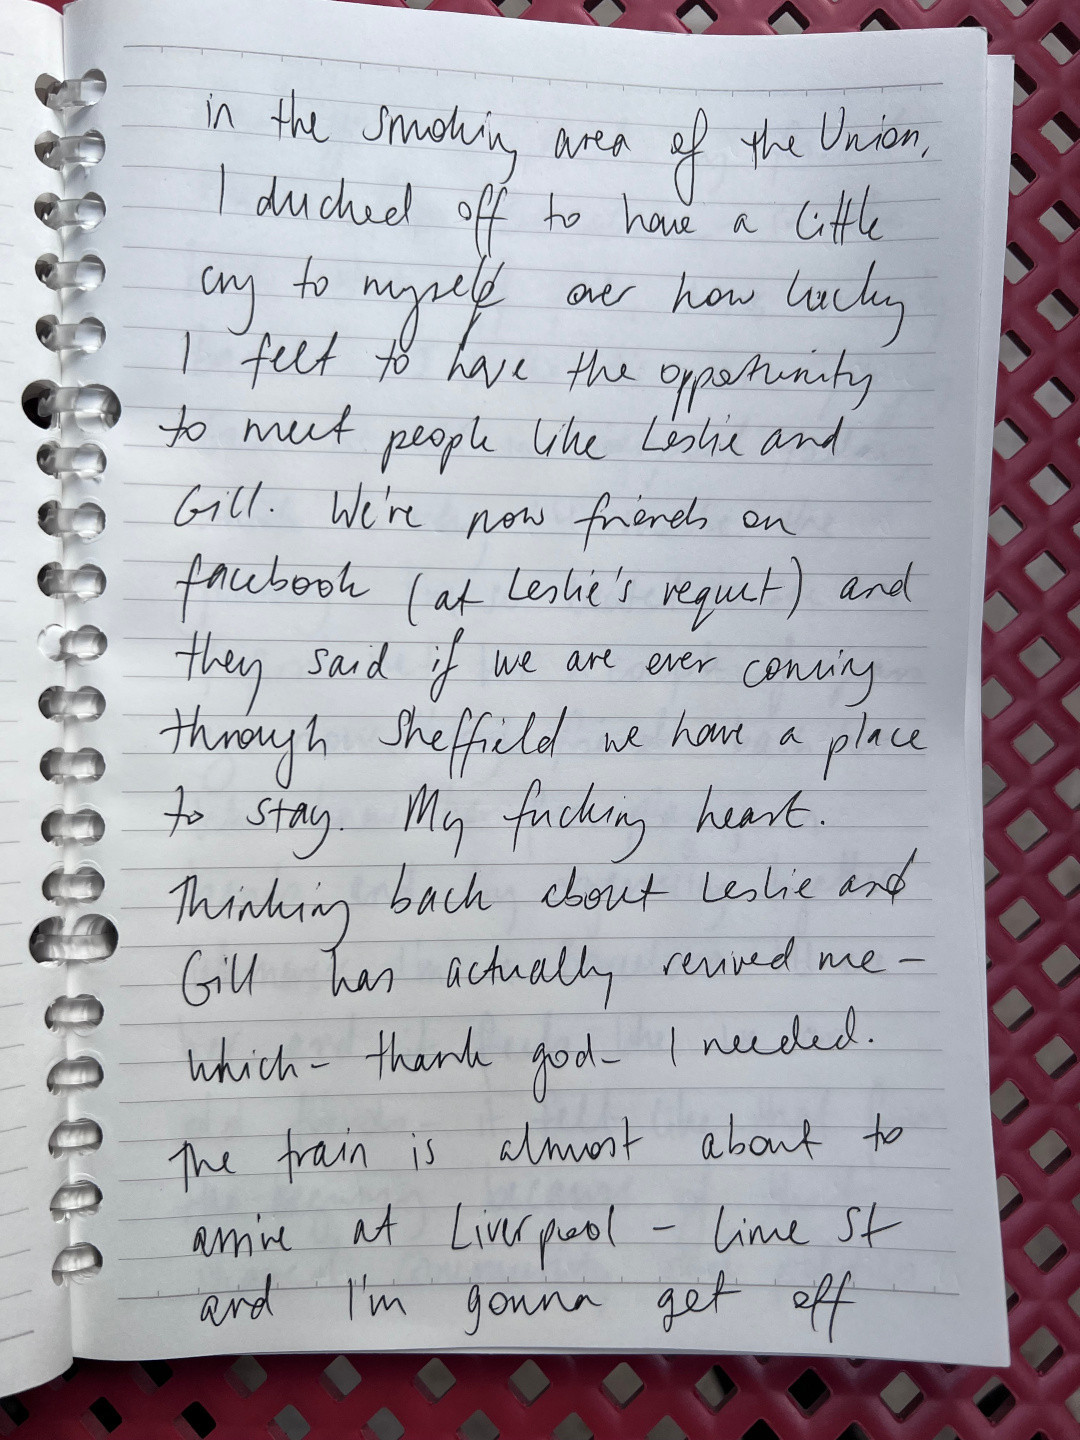 in the smoking area of the Union,
I ducked off to have a little
cry to myself over how lucky
I felt to have the opportunity
to meet people like Leslie and
Gill. We're now friends on
facebook (at Leslie's request) and
they said if we are ever coming
through Sheffield we have a place
to stay. My fucking heart.
Thinking back about Leslie and
Gill has actually revived me –
which – thank god – I needed.
The train is almost about to
arrive at Liverpool – Lime St
and I'm gonna get off